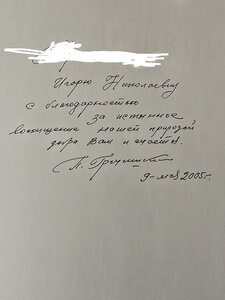 Игорю Николаевичу
с благодарностью
за истинное
восхищение нашей природой,
добра Вам и счастья.
9 - мая 2005г.